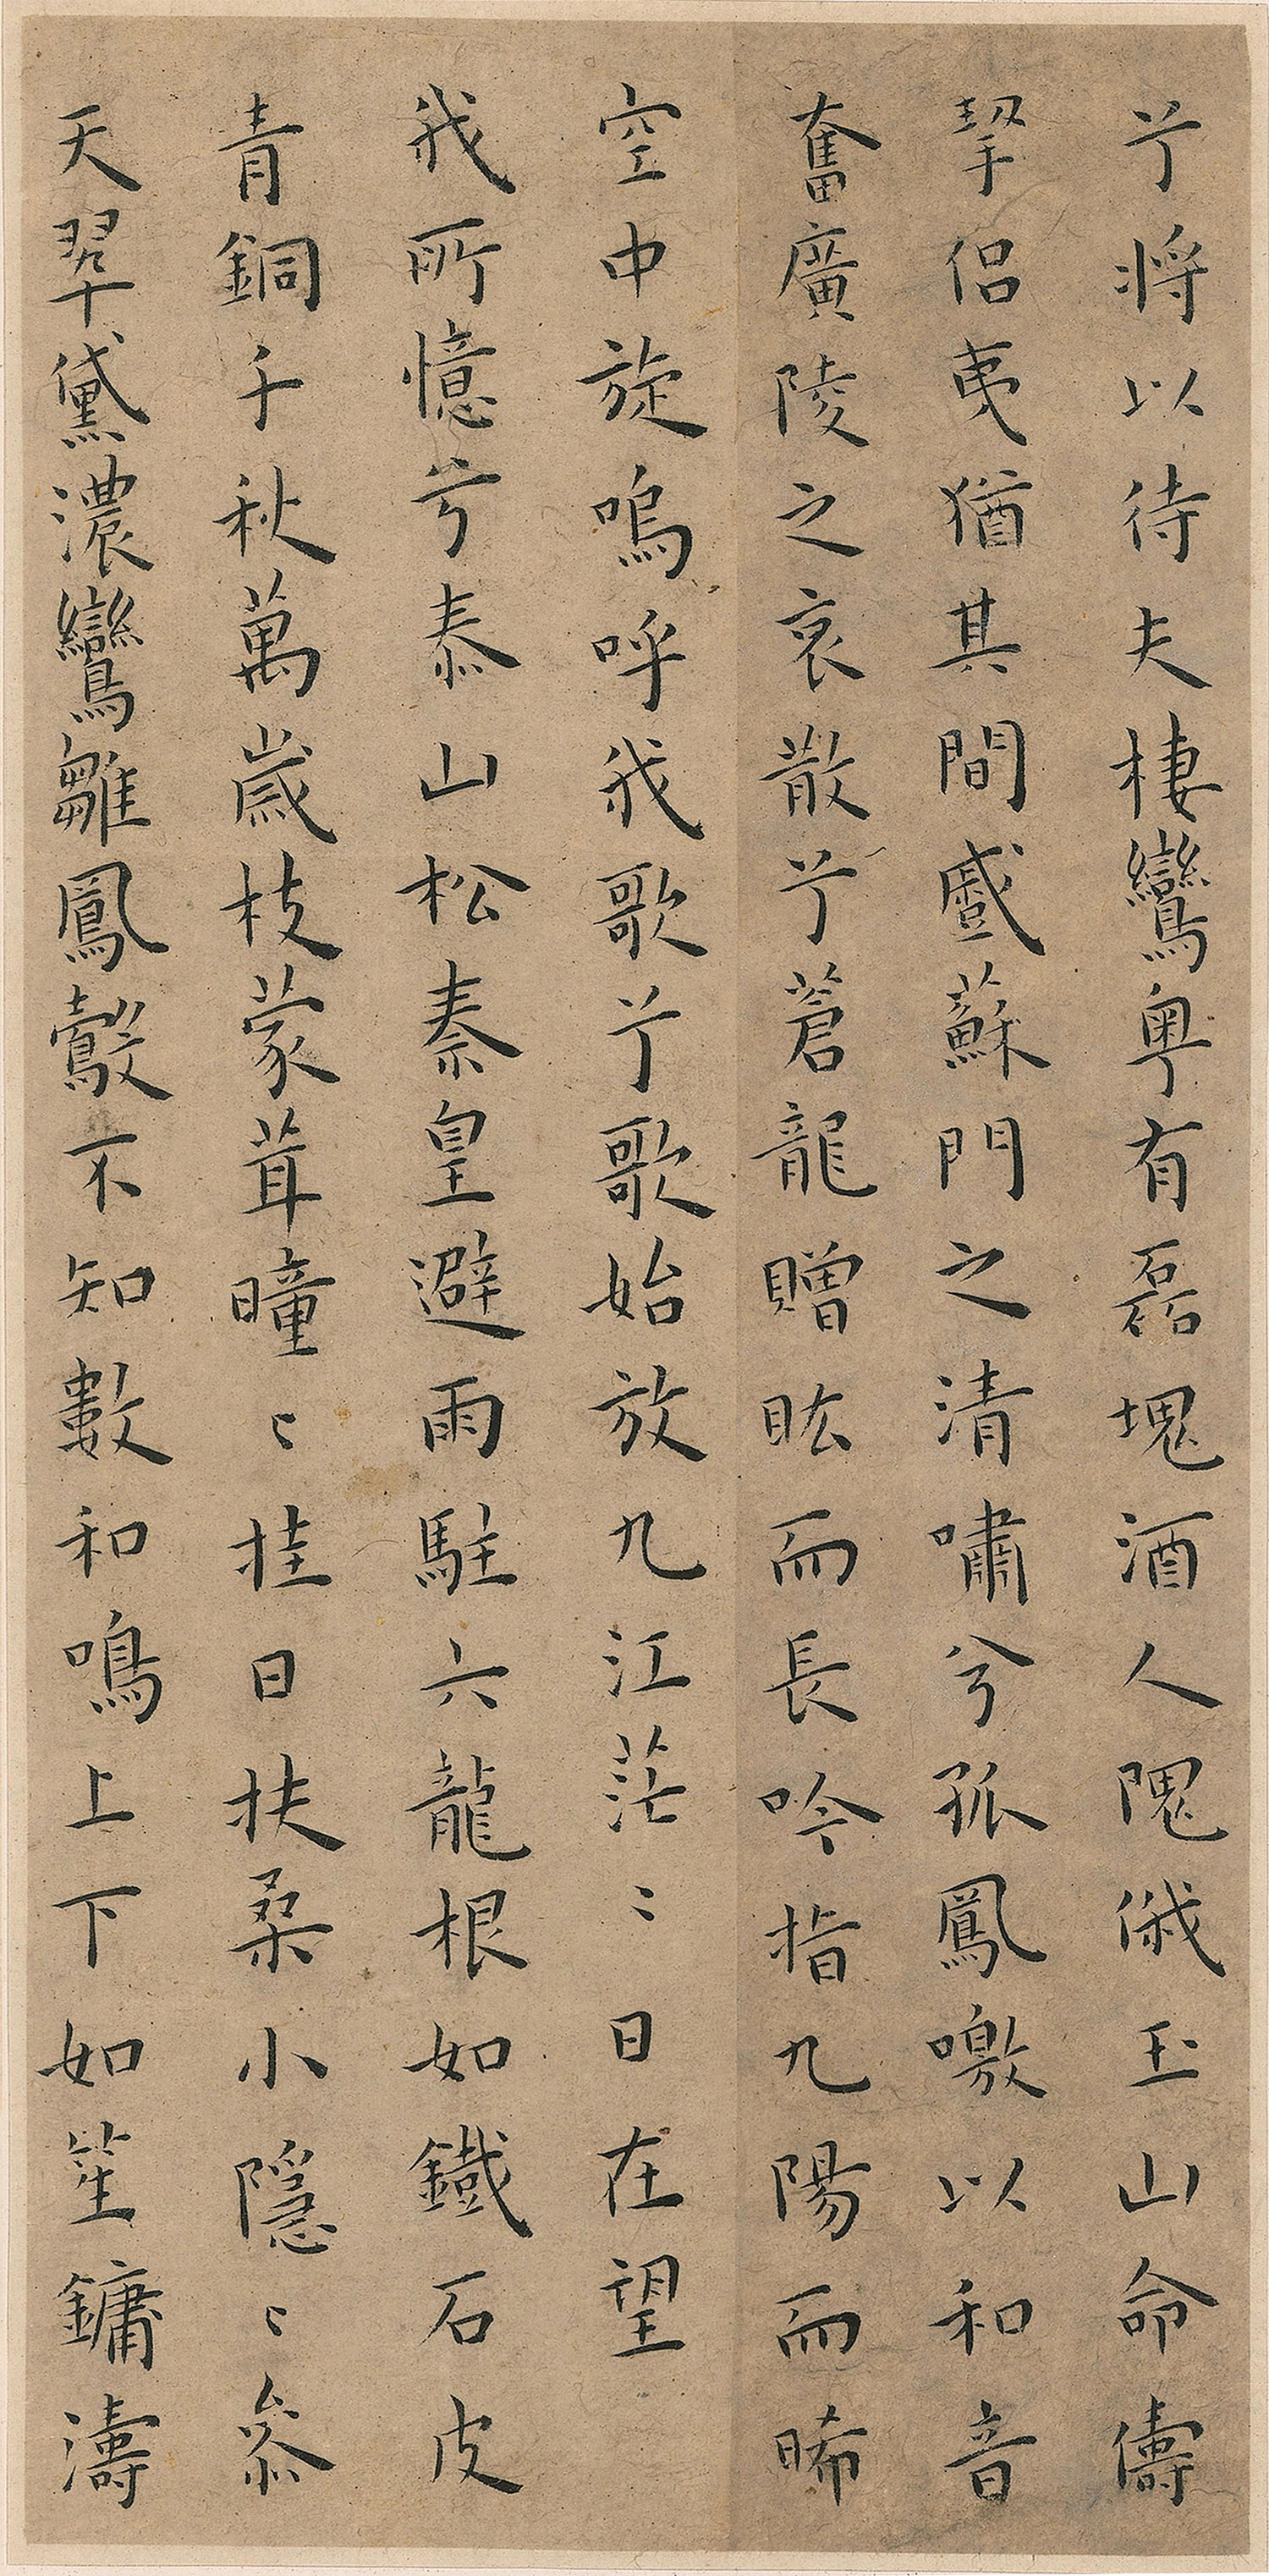 兮將以待夫棲鸞粤有磊塊酒人隗俄玉山命儔
挈侣夷猶其間慼蘇門之清嘯兮孤鳳噭以和音
奮廣陵之哀散兮蒼龍矰眩而長吟指九陽而晞
空中旋嗚呼我歌兮歌始放九江茫〻日在望
我所憶兮泰山松秦皇避雨駐六龍根如鐵石皮
青銅千秋萬歲枝蒙茸曈〻挂日扶桑小隱〻參
天翠黛濃鸞雛鳳鷇不知數和鳴上下如笙鏞濤